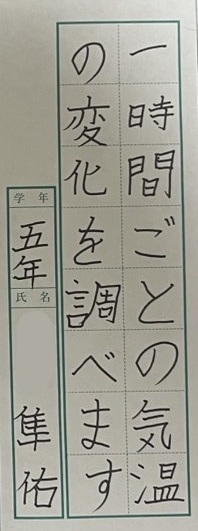 一時間ごとの気温
の変化を調べます
学年
五年
氏名
隼佑